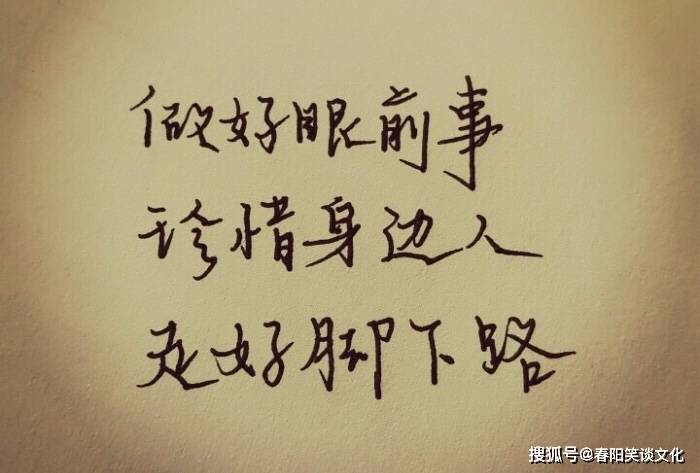 做好眼前事
珍惜身边人
走好脚下路
搜狐号@春阳笑谈文化